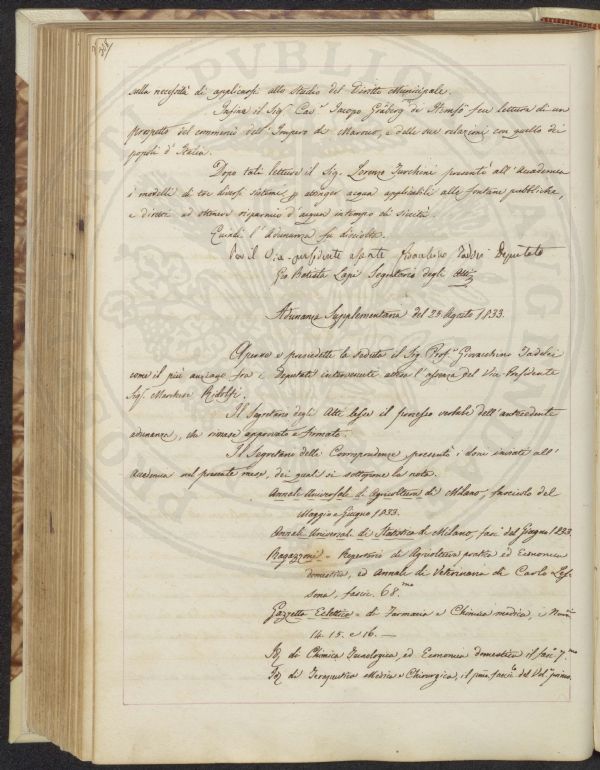 sulla necessità di applicarsi allo studio del Diritto Municipale.
Infine il Sigʳ Cavʳ Jacopo Gräberg de Hemsö fece lettura di un
prospetto del commercio dell'Impero di Marocco, e delle sue relazioni con quello dei
popoli d'Italia.
Dopo tali letture il Sig. Lorenzo Turchini presentò all'Accademia
i modelli di tre diversi sistemi p attinger acqua applicabili alle fontane pubbliche,
e diretti ad ottener risparmio d'acqua in tempo di siccità.
Quindi l'Adunanza fu disciolta.
Per il Vice-presidente assente Gioacchino Taddei Deputato
Gio Batista Lapi Segretario degli Atti
Adunanza Supplementaria del 25. Agosto 1833.
Aperse e presiedette la seduta il Sig. Profʳ Giovacchino Taddei
come il più anziano fra i Deputati intervenuti attesa l'assenza del Vice Presidente
Sigʳ Marchese Ridolfi.
Il Segretario degli Atti lesse il processo verbale dell'antecedente
adunanza, che rimase approvato e firmato.
Il Segretario delle Corrispondenze presentò i doni inviati all'
Accademia nel presente mese, dei quali si sottopone la nota.
Annali Universali di Agricoltura di Milano, fascicolo del
Maggio e Giugno 1833.
Annali Universali di Statistica di Milano, fasc. del Giugno 1833.
Ragazzoni - Repertorio di Agricoltura pratica ed Economia
domestica, ed Annali di Veterinaria di Carlo Les-
sona, fascic. 68.mo
Gazzetta Eclettica - di Farmacia e Chimica medica, i Numi
14. 15. e 16. —
di Chimica Tecnologica, ed Economia domestica il fasc. 7.mo
di Terapeutica Medica e Chirurgica, il pmo fascº del Volᵉ primo.